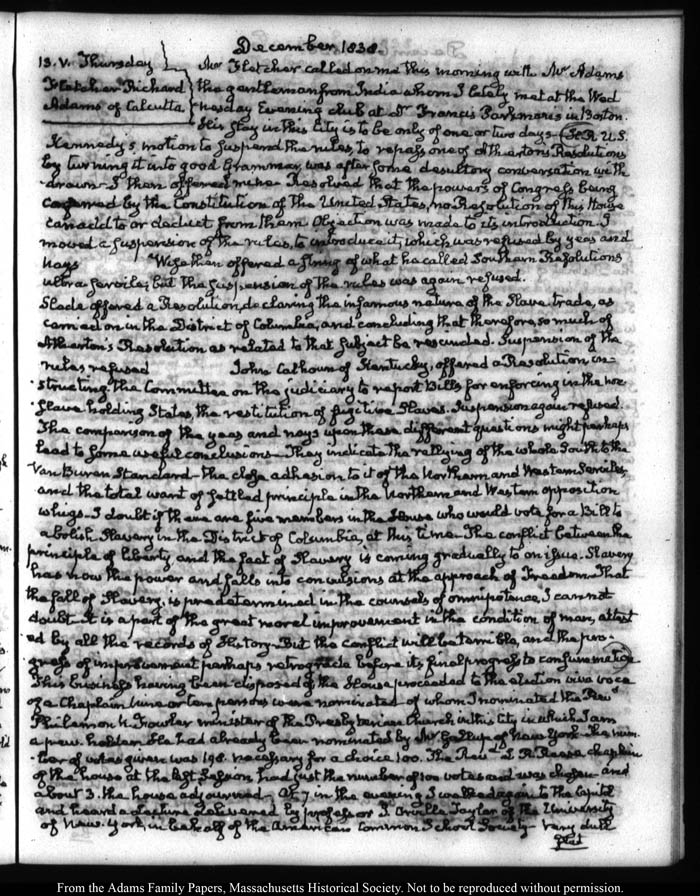 December 1838.
13. V. Thursday
Fletcher Richard
Adams of Calcutta
Mr Fletcher called on me this morning with Mr Adams
the gentleman from India whom I lately met at the Wed
nesday Evening club at Dr Francis Parkman's in Boston.
His stay in this City is to be only of one or two days — H.R. U.S.
Kennedy's motion to suspend the rules, to repass one of Atherton's Resolutions
by turning it into good Grammar, was after some desultory conversation with
drawn — I then offered mine Resolved that the powers of Congress being
conferred by the Constitution of the United States, no Resolution of this House
can add to or deduct from them. Objection was made to its introduction. I
moved a suspension of the rules, to introduce it, which was refused by yeas and
nays Wise then offered a string of what he called Southern Resolutions
ultra servile; but the suspension of the rules was again refused.
Slade offered a Resolution, declaring the infamous nature of the Slave trade, as
carried on in the District of Columbia, and concluding that therefore, so much of
Atherton's Resolution as related to that subject be rescinded. Suspension of the
rules refused John Calhoun of Kentucky, offered a Resolution in-
structing the Committee on the judiciary to report Bills for enforcing in the non
slave holding States, the restitution of fugitive Slaves. Suspension again refused
The comparison of the yeas and nays upon these different questions might perhaps
lead to some useful conclusions — They indicate the rallying of the whole South to the
Van Buren Standard — the close adhesion to it of the Northern and Western Serviles,
and the total want of settled principle in the Northern and Western opposition
whigs — I doubt if there are five members in the House who would vote for a Bill to
abolish Slavery in the District of Columbia, at this time — The conflict between the
principle of liberty and the fact of Slavery is coming gradually to an issue. Slavery
has now the power and falls into convulsions at the approach of Freedom — That
the fall of Slavery is predetermined in the counsels of omnipotence, I cannot
doubt — It is a part of the great moral improvement in the condition of man, attest
ed by all the records of History — But the conflict will be terrible, and the pro-
gress of improvement perhaps retrograde before its final progress to consummation
This business having been disposed of the House proceeded to the election viva voce
of a Chaplain nine or ten persons were nominated of whom I nominated the Revd
Philemon H Fowler minister of the Presbyterian Church in this City in which I am
a pew holder He had already been nominated by Mr Gallup of New York The num
ber of votes given was 198. necessary for a choice 100. The Revd L R Reese chaplain
of the house at the last Session had just the number of 100 votes and was chosen — and
about 3. the house adjourned — At 7 in the evening I walked again to the Capitol
and heard a lecture delivered by professor J. Orville Taylor of the University
of New-York, in behalf of the American Common School Society — Very dull
flat
From the Adams Family Papers, Massachusetts Historical Society. Not to be reproduced without permission.